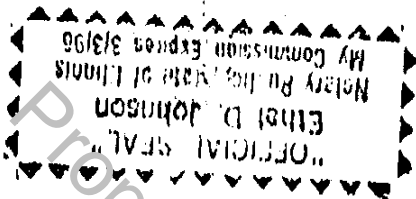 "OFFICIAL SEAL"
Ethel D. Johnson
Notary Public, State of Illinois
My Commission Expires 3/3/96